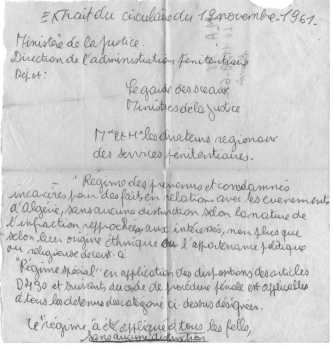 Extrait du circulaire du 12 novembre-1961.
Ministère de la justice.
Direction de l'administration Penitentiaire
Depot:
Le garde des sceaux
Ministres de la Justice
à
Mrs et H les directeurs regionaux
des services penitentiaires.
- "Régime des prevenus et condamnés
incarcérés pour des faits en relation avec les evenements
d'Algérie, sans aucune distinction selon la nature de
l'infraction, reprochées aux interessés, non plus que
selon leur origine éthnique ou l'appartenance politique
ou religieuse
"Régime spécial" en application des dispositions des articles
D490 et suivants du code de procédure pénale est applicables
à tous les detenus des catégorie ci-dessus désignées.
Ce régime a été appliqué à tous les fells,
sans aucune distinction